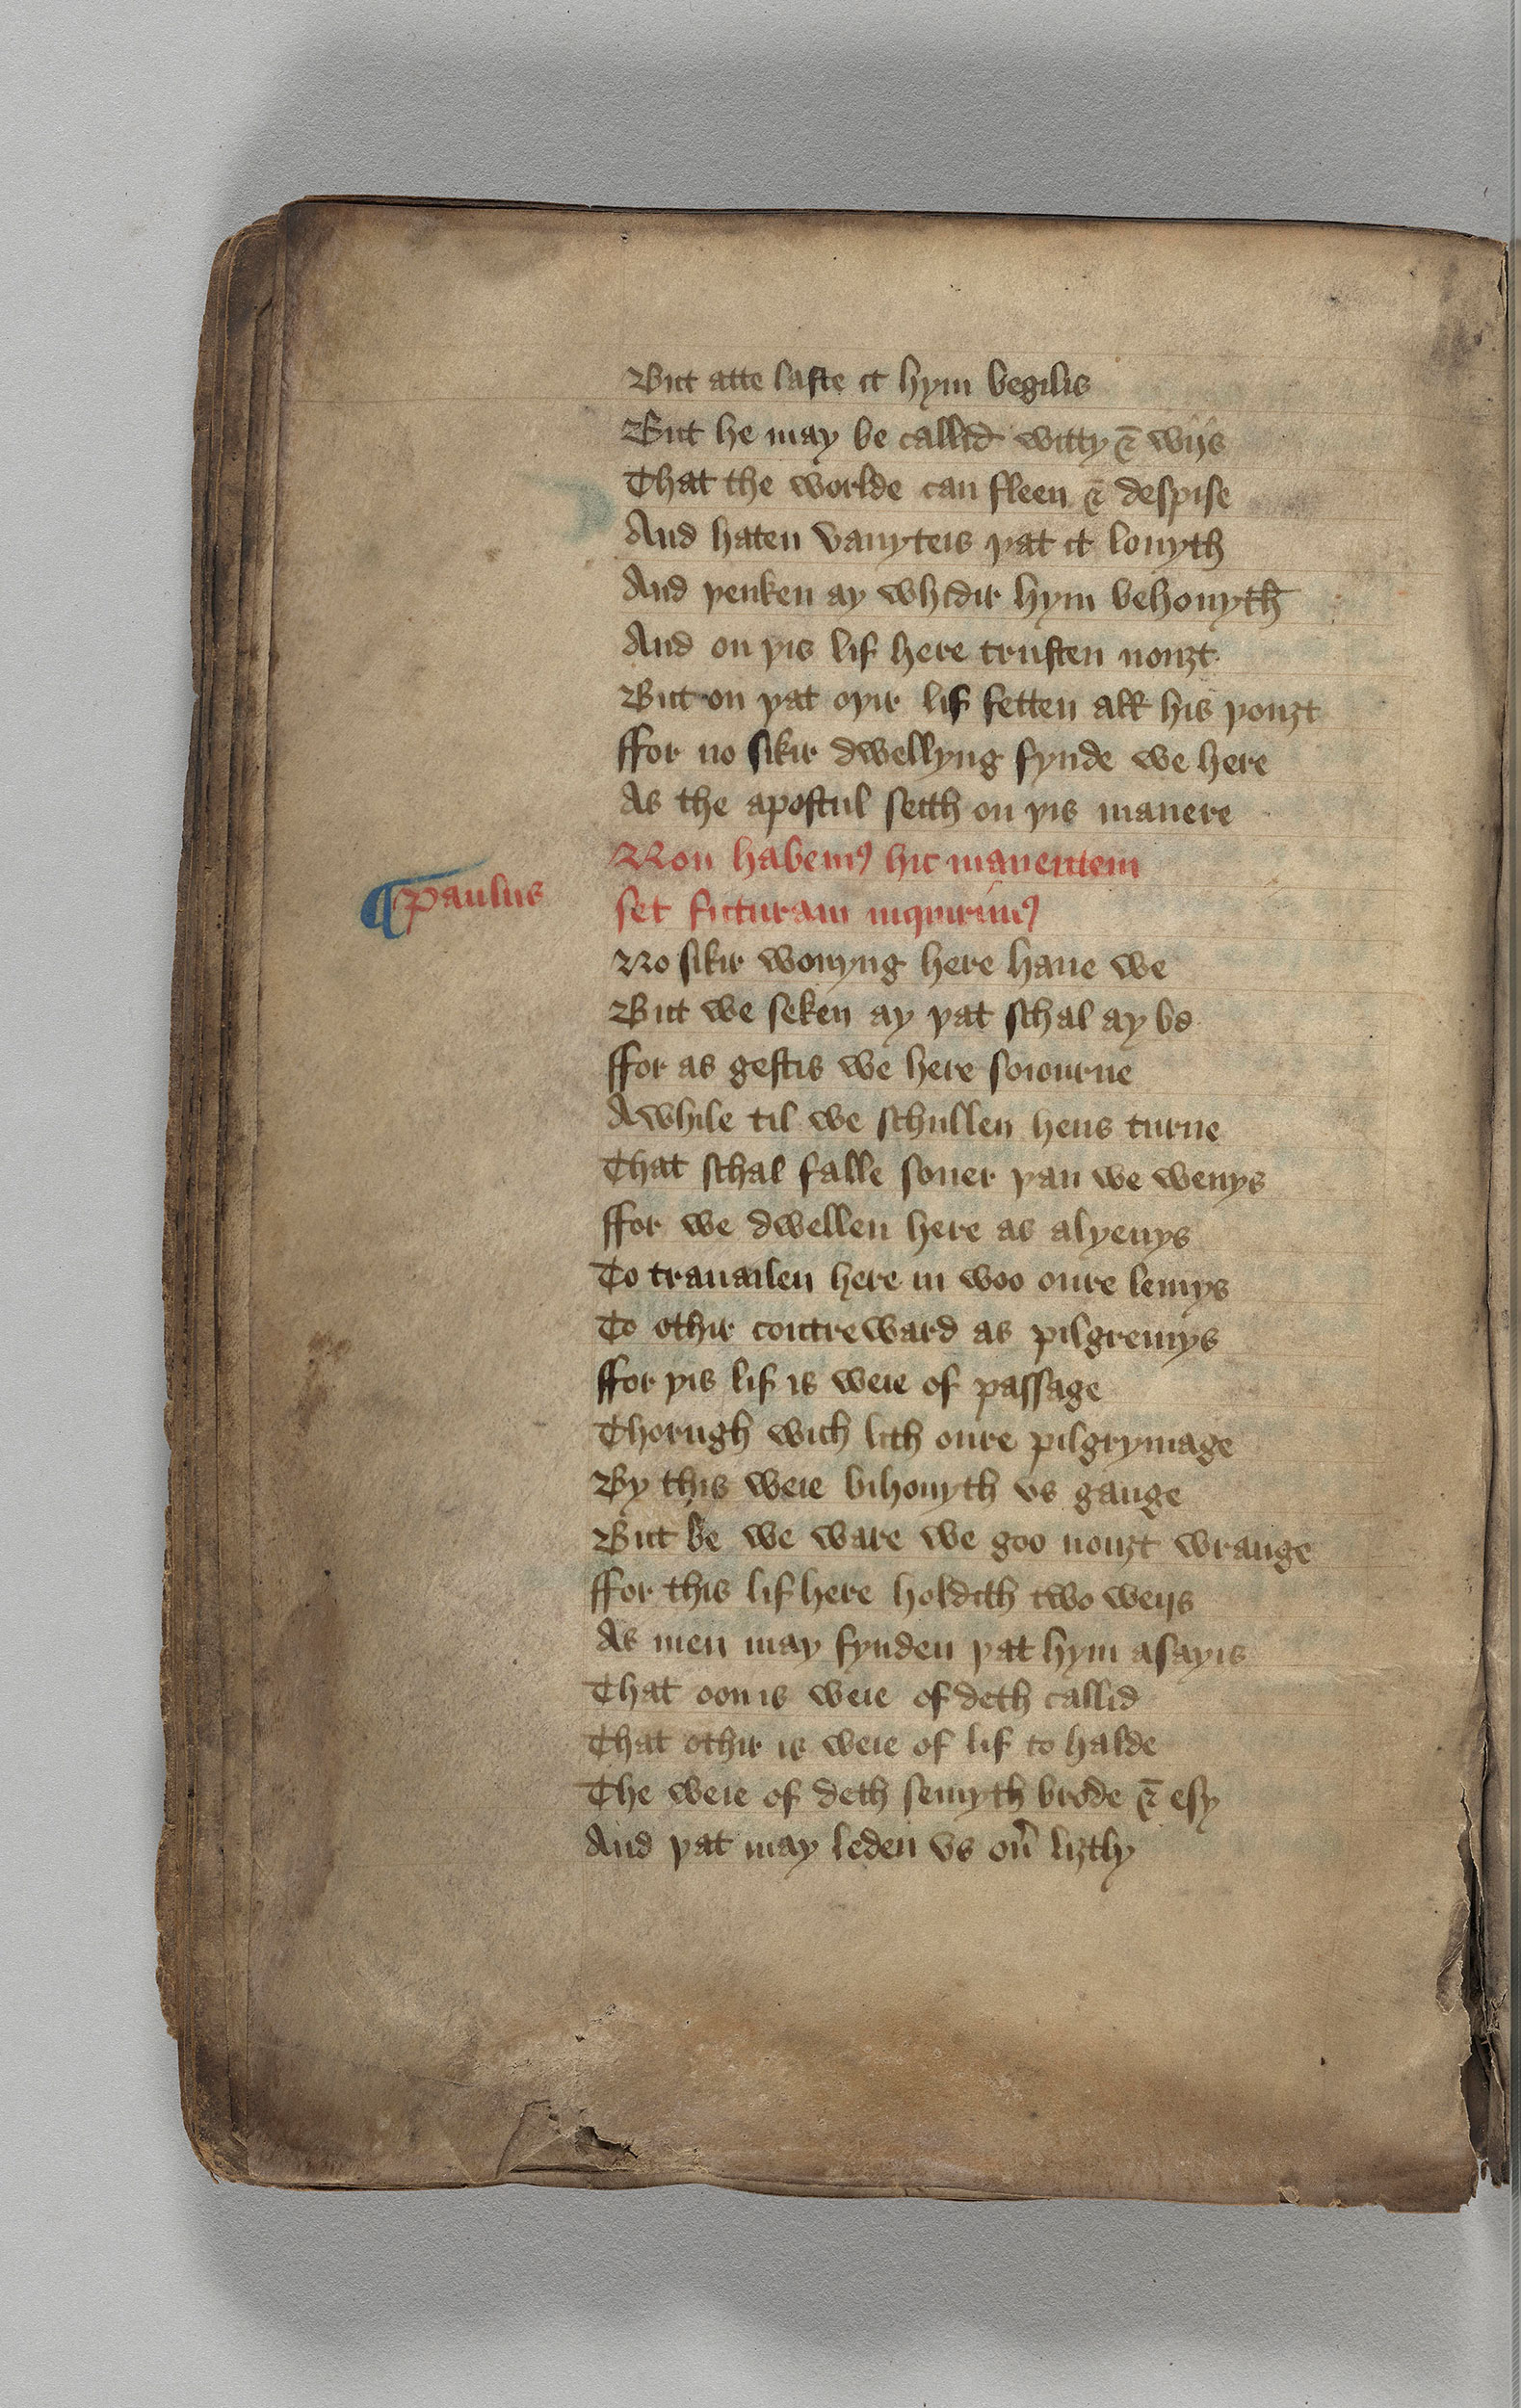 But atte laste it hym begilis
But he may be callid witty & wijs
That the worlde can fleen & despise
And haten vanyteis þat it louyth
And þenken ay whidir hym behouyth
And on þis lif here trusten nouȝt
But on þat oþir lif setten all his þouȝt
ffor no sikir dwellyng fynde we here
As the apostul seith on þis manere
Non habemꝰ hic manentem
¶ Paulus
set futuram inquirimꝰ
No sikir wonyng here haue we
But we seken ay þat schal ay be
ffor as gestis we here soiourne
Awhile til we schullen hens turne
That schal falle soner þan we wenys
ffor we dwellen here as alyenys
To trauailen here in woo oure lemys
To othir contreward as pilgremys
ffor þis lif is weie of passage
Thorugh wich lith oure pilgrymage
By this weie bihouyth vs gange
But be we ware we goo nouȝt wrange
ffor this lif here holdith two weijs
As men may fynden þat hym asayis
That oon is weie of deth callid
That othir is weie of lif to halde
The weie of deth semyth brode & esy
And þat may leden vs ou̓ liȝtly